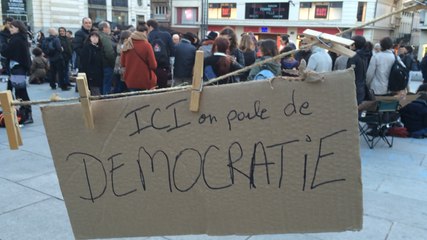 ICI on parle de
DEMOCRATIE